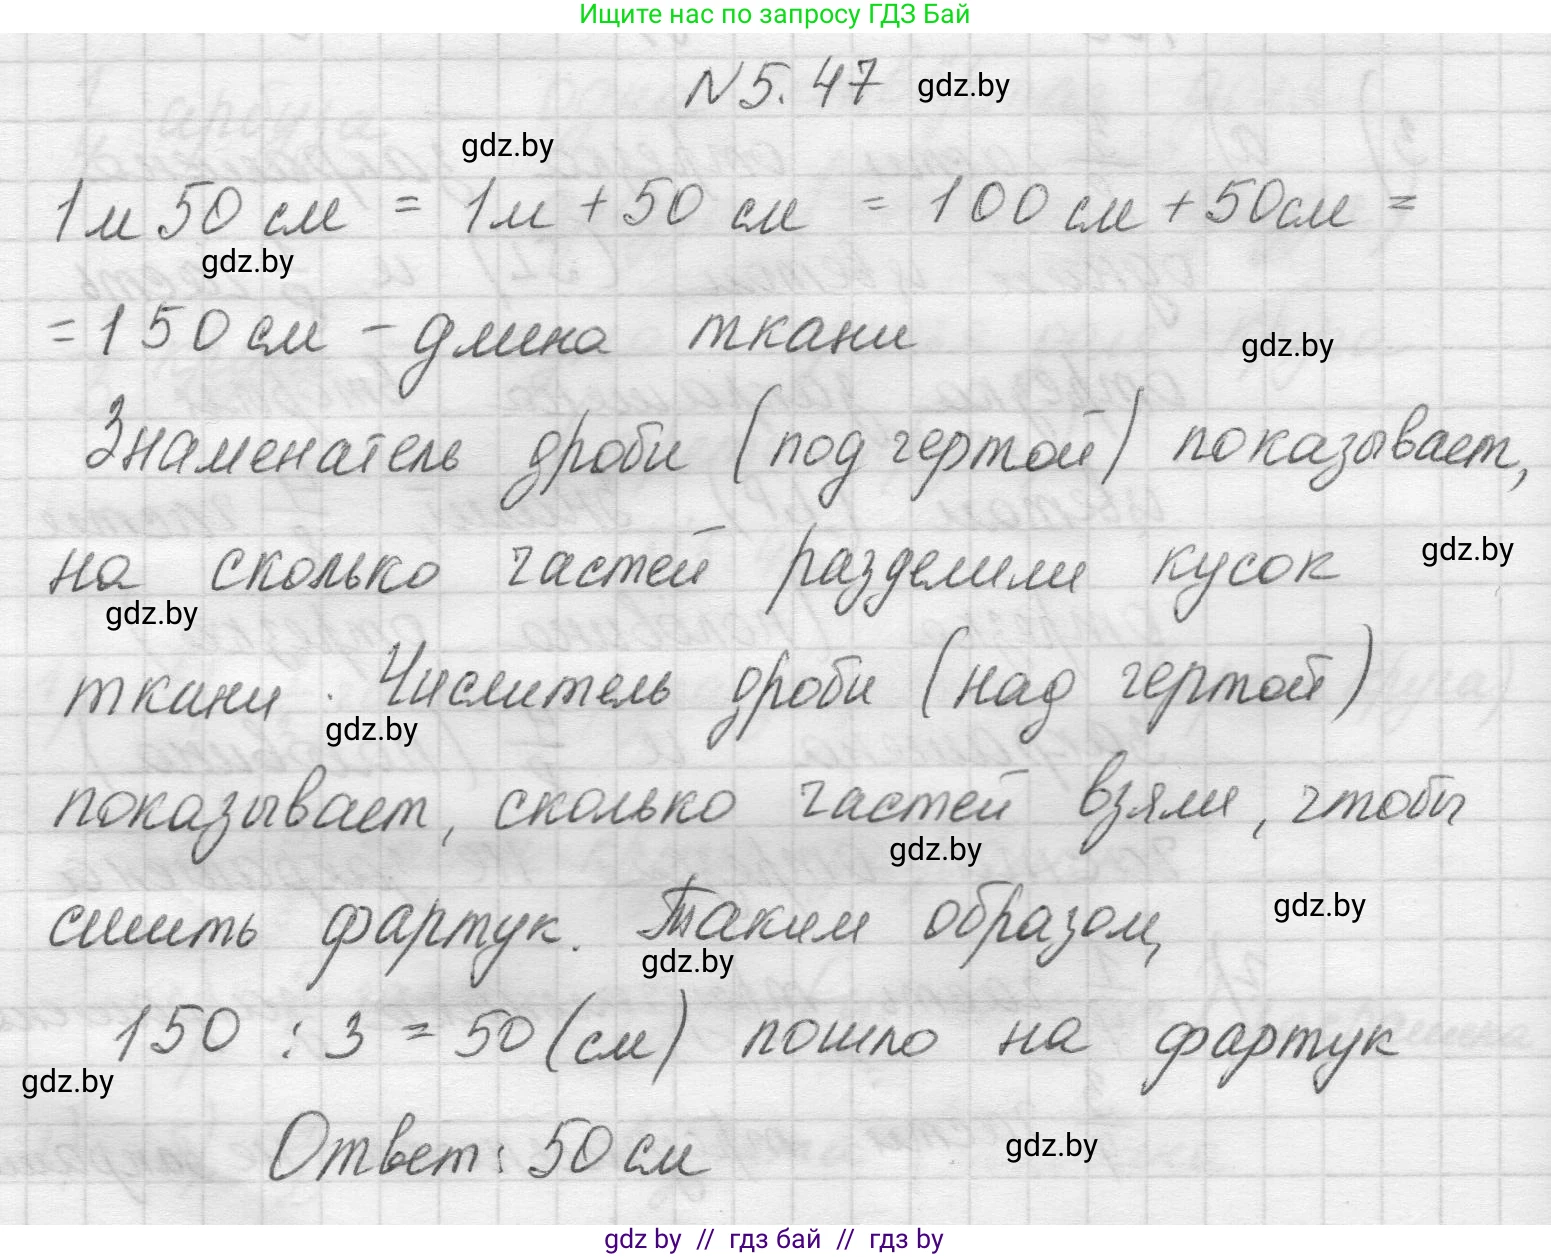 Ищите нас по запросу ГДЗ Бай
N 5.47 gdz.by
gdz.by
1м 50 см = 1м + 50 см = 100 см + 50см =
gdz.by
= 150 см - длина ткани
gdz.by
Знаменатель дроби (под чертой) показывает,
на сколько частей разделили кусок
gdz.by
gdz.by
ткани. Числитель дроби (над чертой)
gdz.by
показывает, сколько частей взяли, чтобы
gdz.by
сшить фартук. Таким образом,
gdz.by
gdz.by
150 : 3 = 50 (см) пошло на фартук
gdz.by
Ответ: 50 см
gdz.by
gdz by // гдз бай // гдз by